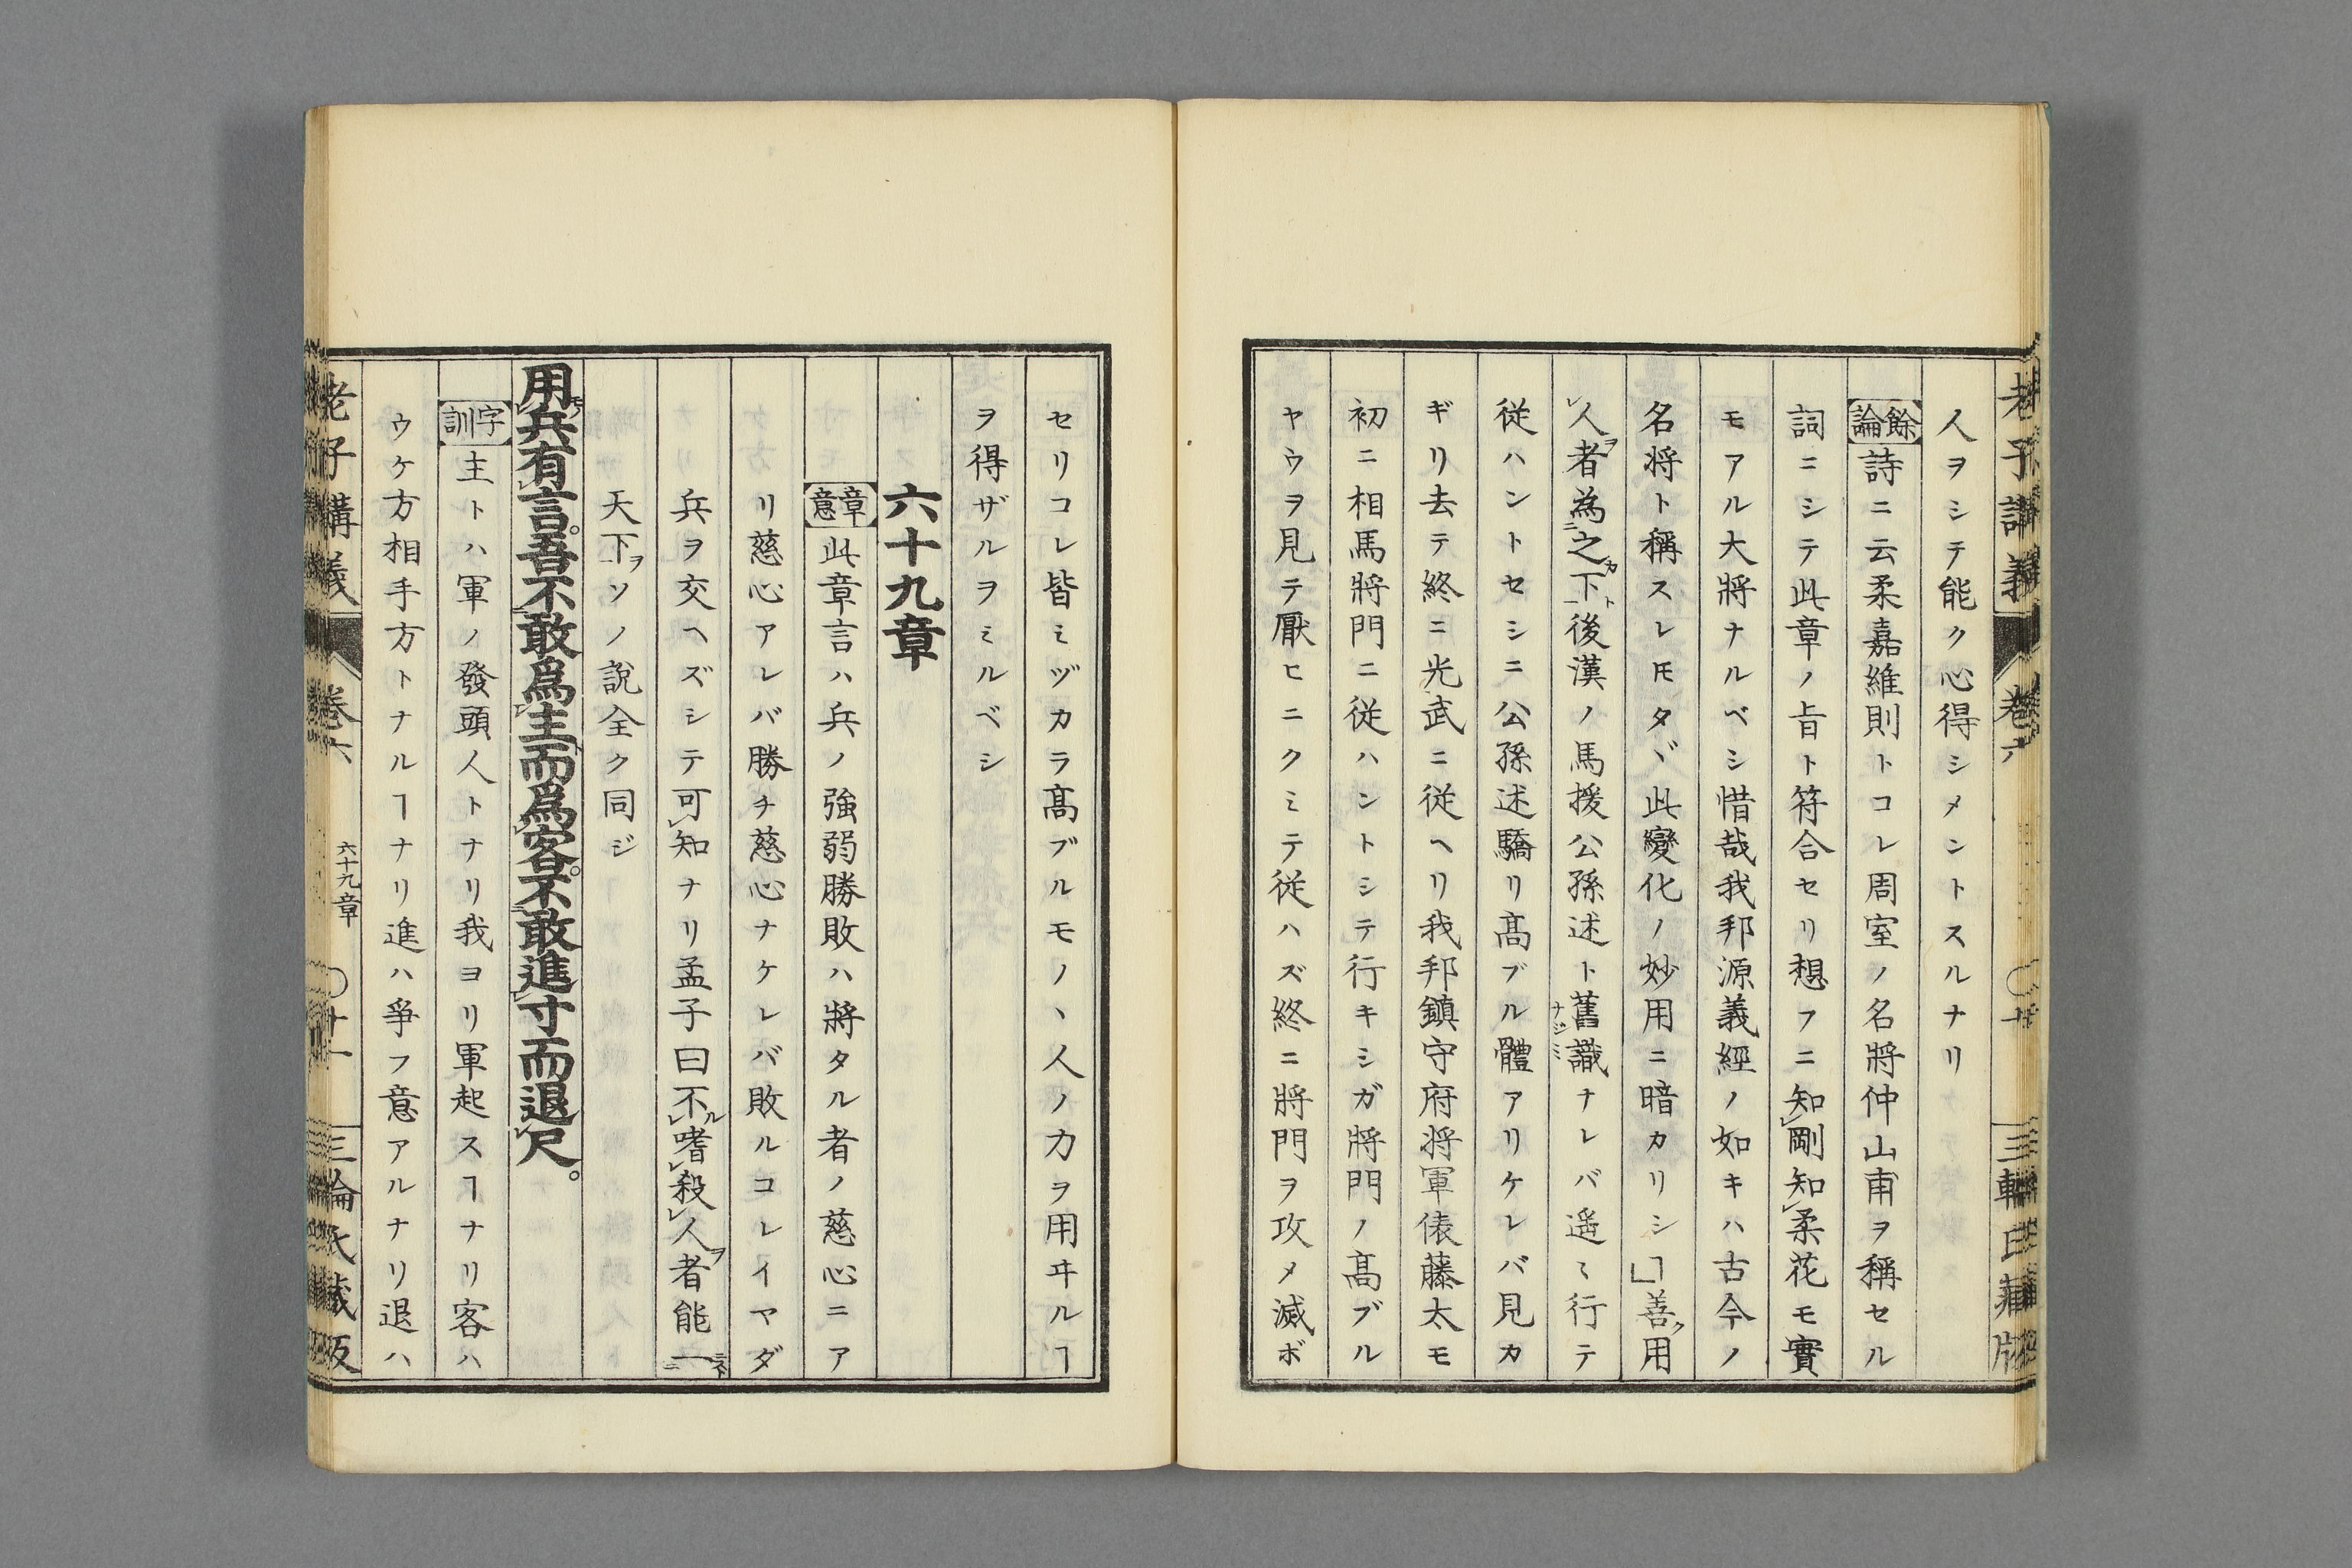 老子講義
卷六
三輪氏藏版
人ヲシテ能ク心得シメントスルナリ
餘論 詩ニ云柔嘉維則トコレ周室ノ名將仲山甫ヲ稱セル
詞ニシテ此章ノ旨ト符合セリ想フニ知レ剛知レ柔花モ實
モアル大將ナルベシ惜哉我邦源義經ノ如キハ古今ノ
名将ト稱スレ𪜈タヾ此變化ノ妙用ニ暗カリシ」ヿ善ク用
レ人ヲ者為二之カ下一ト後漢ノ馬援公孫述ト舊識ナジミナレバ遥〻行テ
従ハントセシニ公孫述驕リ髙ブル體アリケレバ見カ
ギリ去テ終ニ光武ニ従ヘリ我邦鎮守府将軍俵藤太モ
初ニ相馬將門ニ従ハントシテ行キシガ將門ノ髙ブル
ヤウヲ見テ厭ヒニクミテ従ハズ終ニ將門ヲ攻メ滅ボ
セリコレ皆ミヅカラ髙ブルモノヽ人ノ力ヲ用ヰルヿ
ヲ得ザルヲミルベシ
六十九章
章意 此章言ハ兵ノ強弱勝敗ハ將タル者ノ慈心ニア
リ慈心アレバ勝チ慈心ナケレバ敗ルコレイマダ
兵ヲ交ヘズシテ可レ知ナリ孟子曰不ルレ嗜レ殺レ人ヲ者能一ニス二
天下ヲ一ソノ説全ク同ジ
用レ兵有レ言。吾不二敢爲一レ主而爲レ客。不二敢進一レ寸而退レ尺。
字訓 主トハ軍ノ發頭人トナリ我ヨリ軍起スヿナリ客ハ
ウケ方相手方トナルヿナリ進ハ爭フ意アルナリ退ハ
老子講義
卷六
六十九章
〇廿一
三輪氏藏版